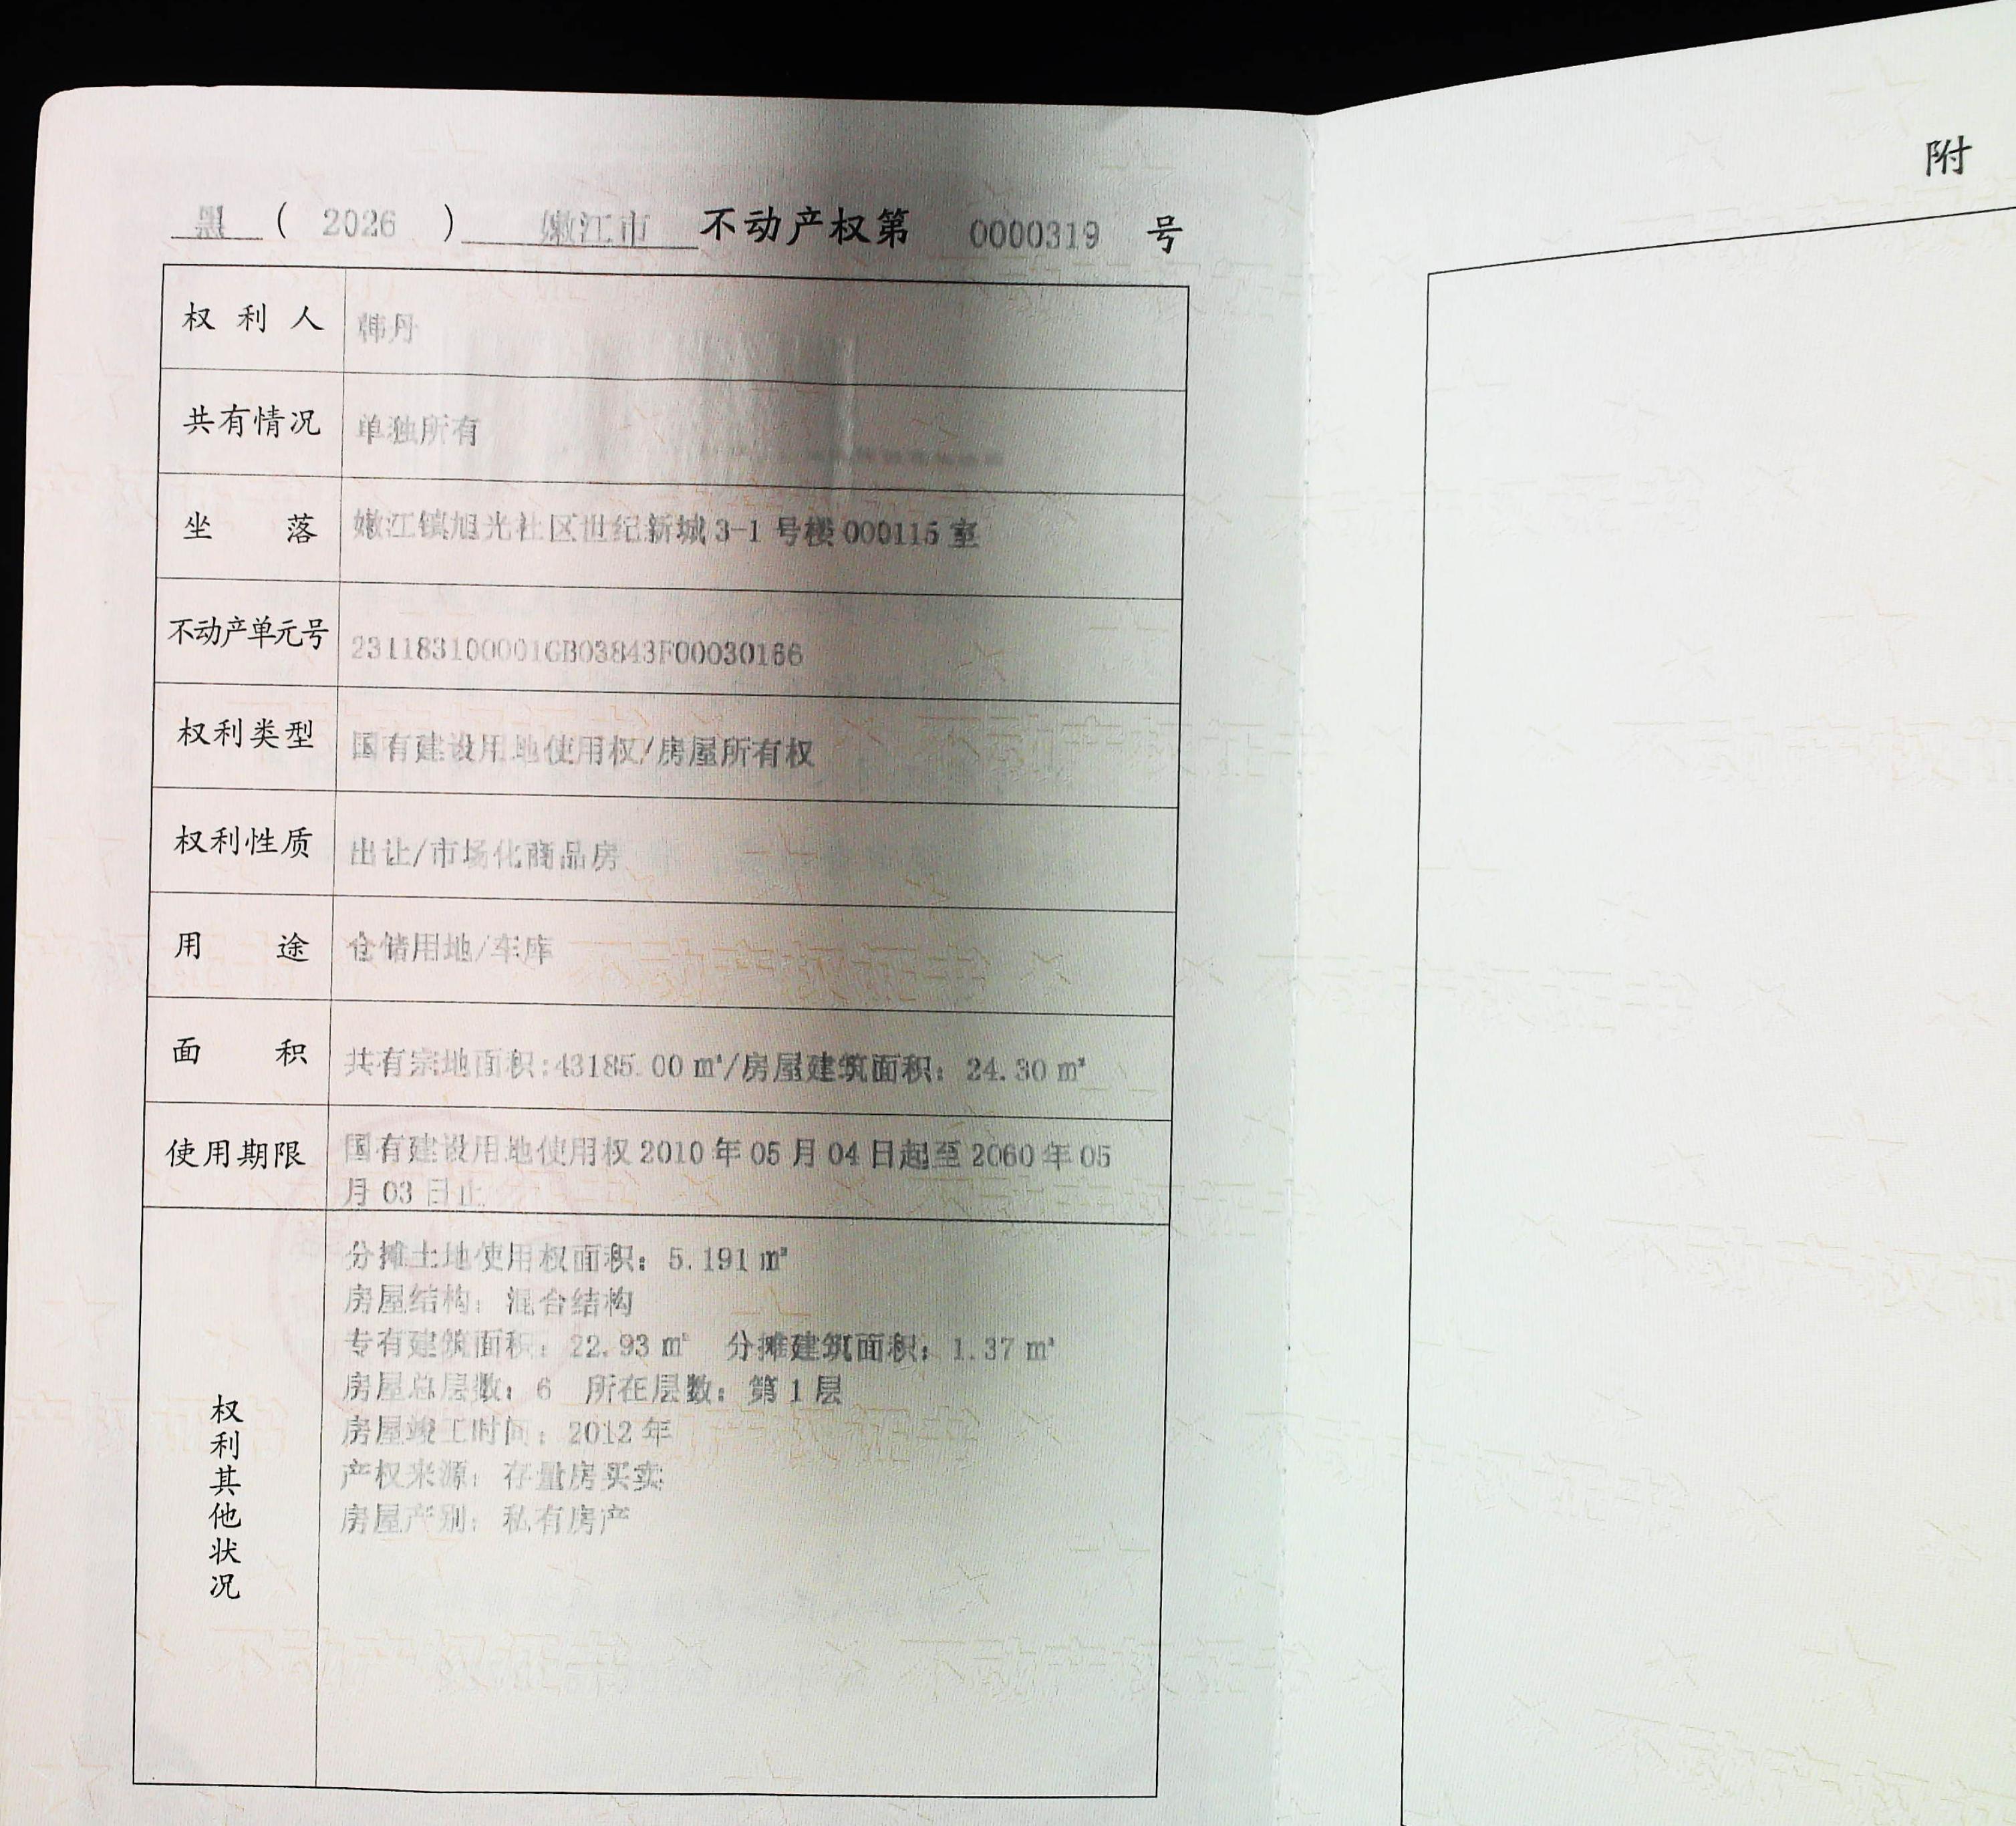 黑 ( 2026 ) 嫩江市 不动产权第 0000319 号
附
权利人 韩丹
共有情况 单独所有
坐落 嫩江镇旭光社区世纪新城3-1号楼000115室
不动产单元号 231183100001GB03843F00030166
权利类型 国有建设用地使用权/房屋所有权
权利性质 出让/市场化商品房
用途 仓储用地/车库
面积 共有宗地面积:43185.00㎡/房屋建筑面积：24.30㎡
使用期限 国有建设用地使用权2010年05月04日起至2060年05
月03日止
权利其他状况
分摊土地使用权面积：5.191㎡
房屋结构：混合结构
专有建筑面积：22.93㎡ 分摊建筑面积：1.37㎡
房屋总层数：6 所在层数：第1层
房屋竣工时间：2012年
产权来源：存量房买卖
房屋产别：私有房产